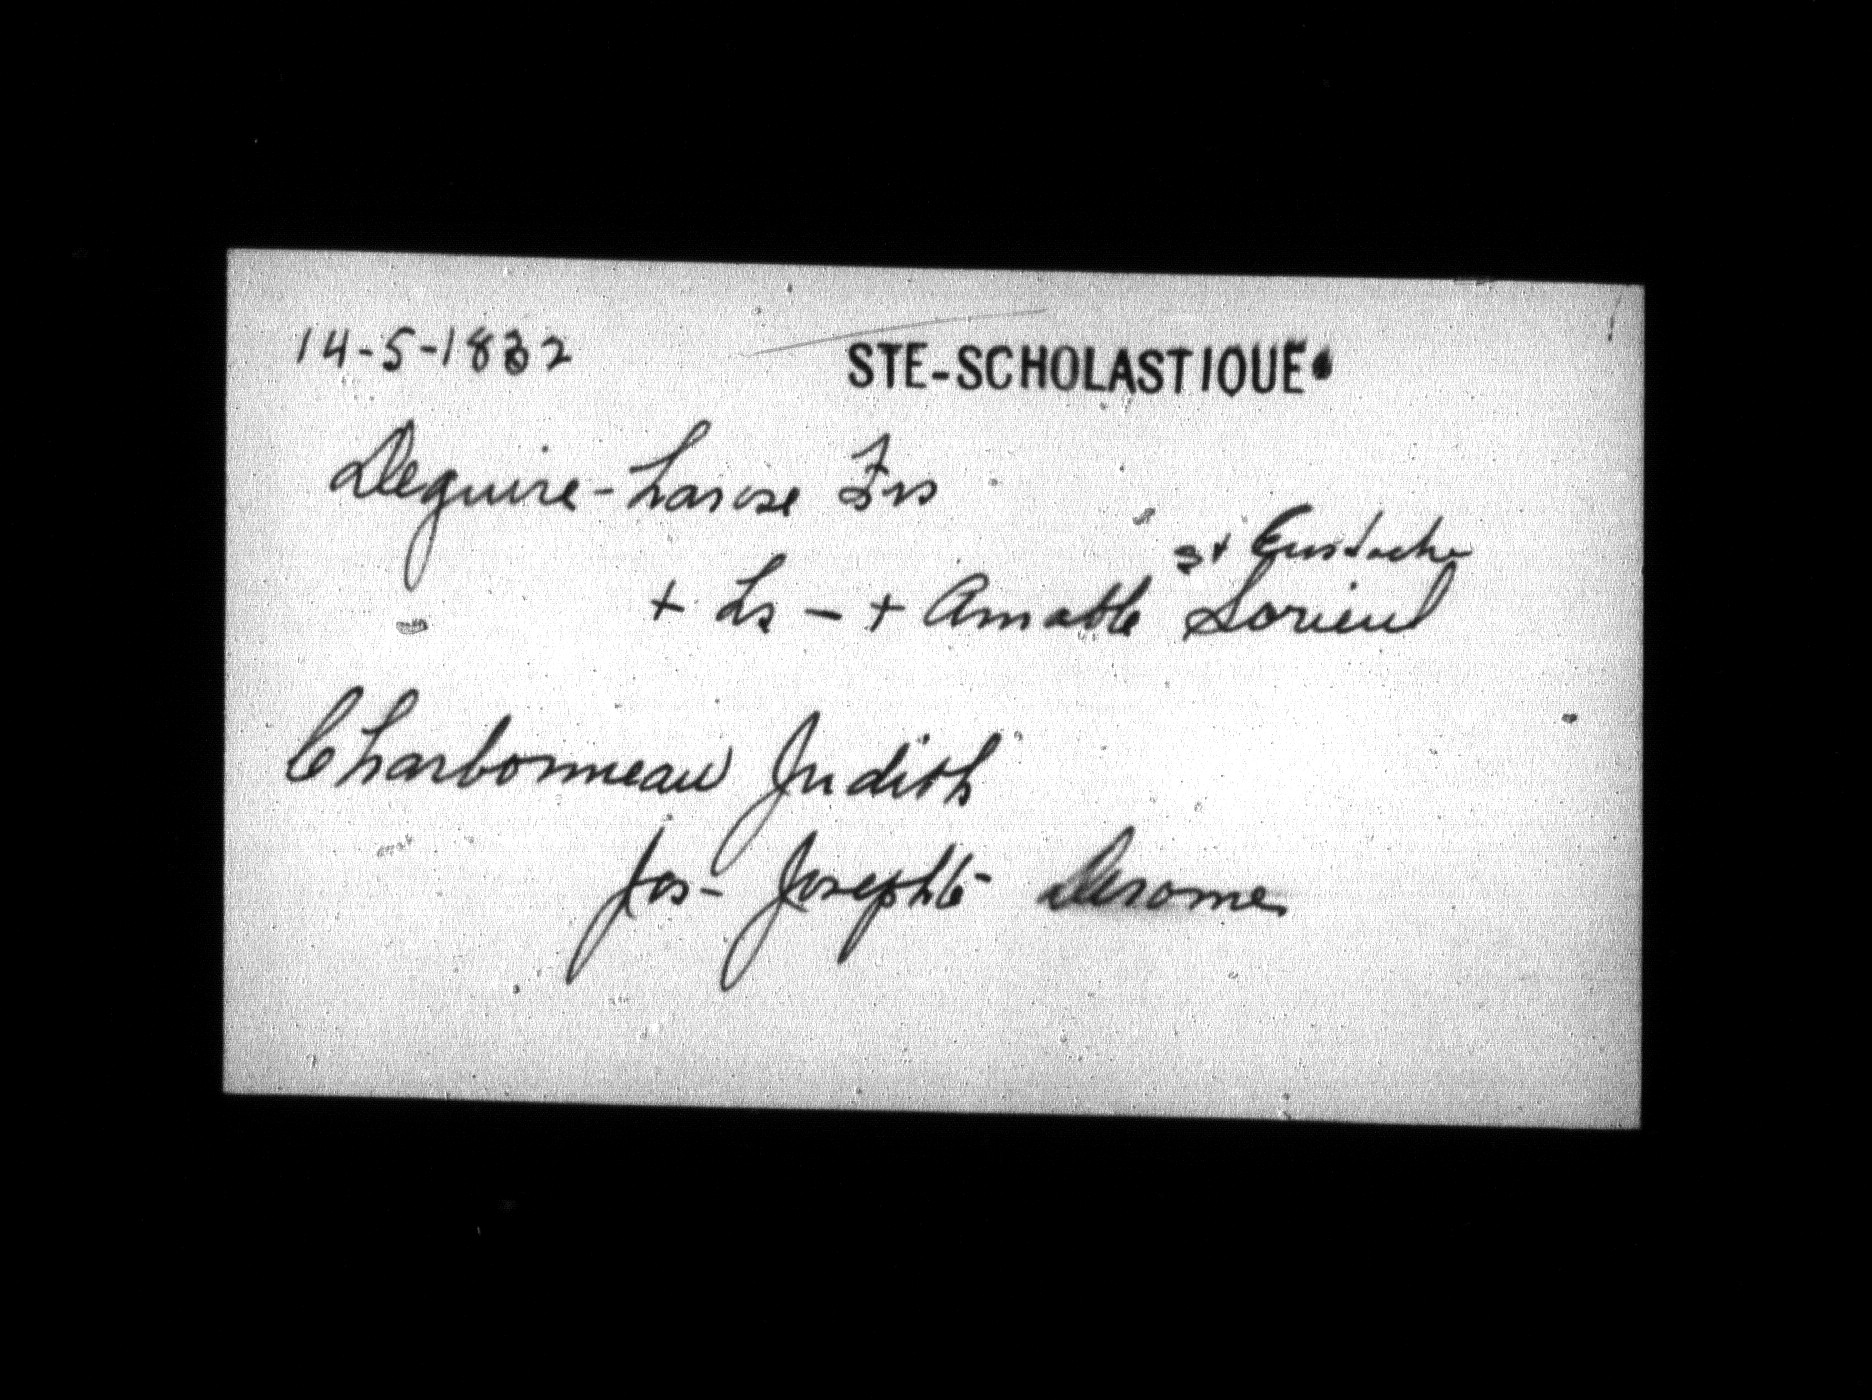 14-5-1832 STE-SCHOLASTIQUE
Deguire-Larose Frs
St Eustache
+ Ls - + Amable Lorieul
Charbonneau Judith
Jos - Josephte - Derome